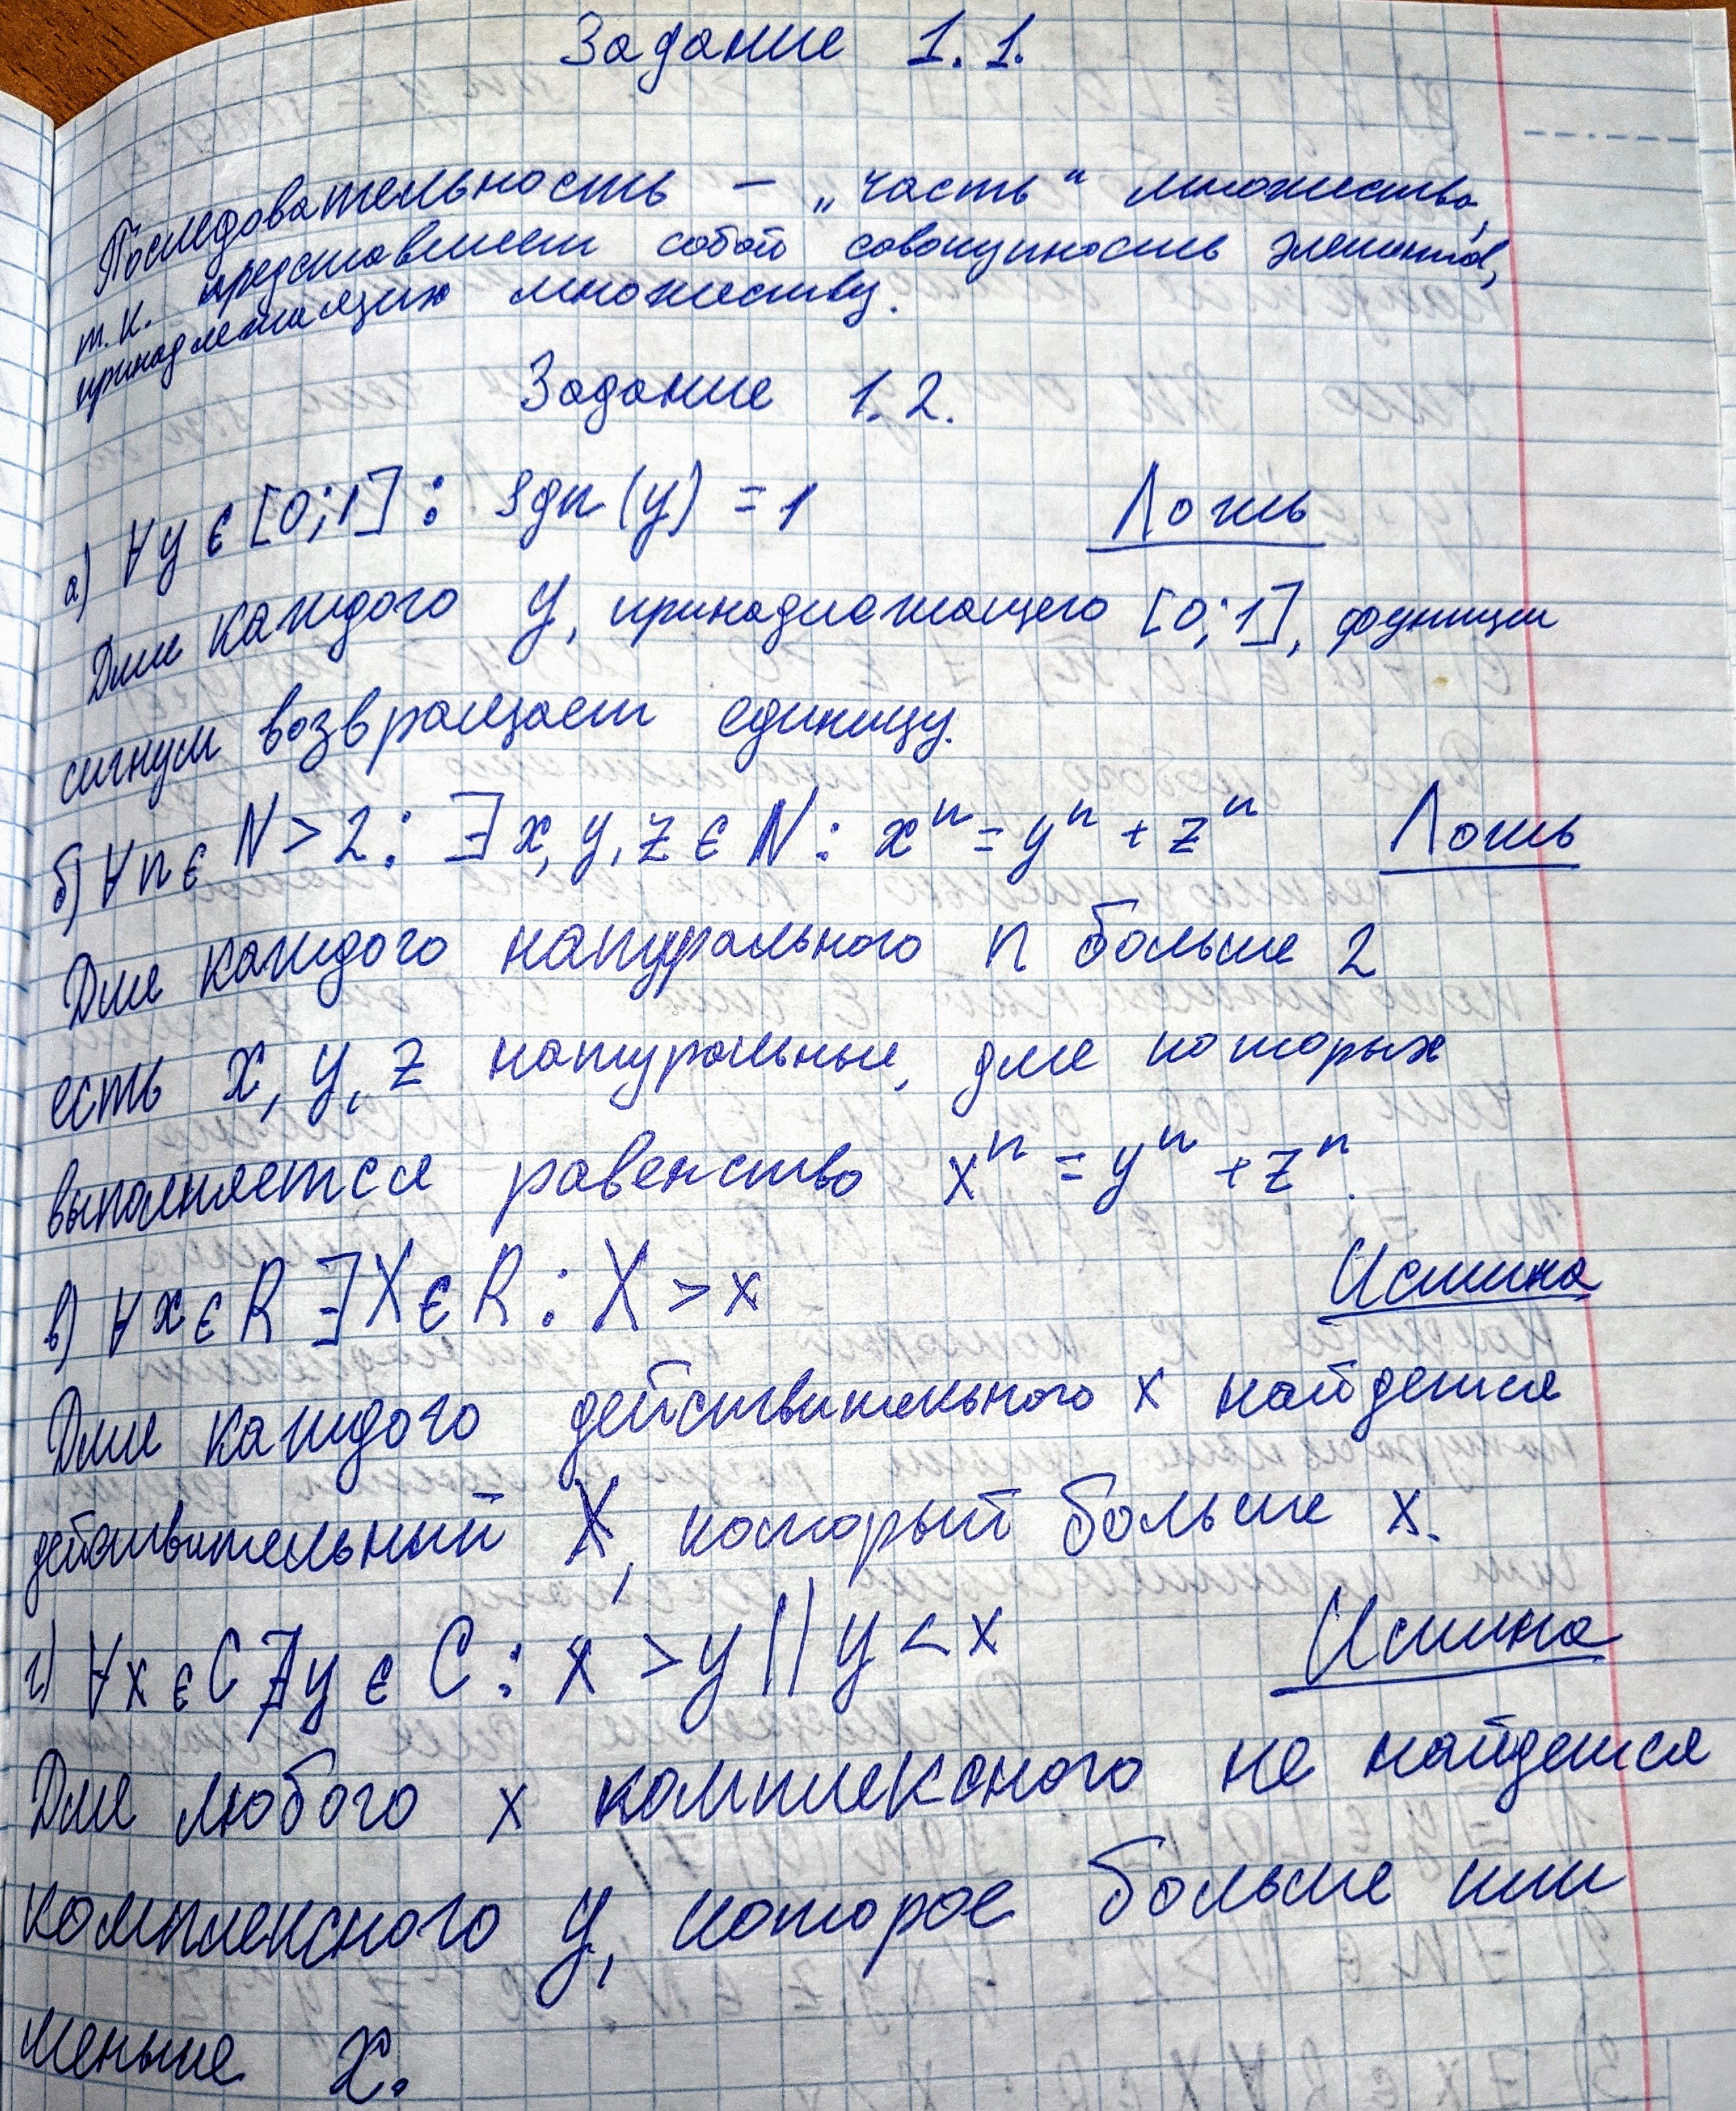 Задание 1.1.
Последовательность – „часть“ множества,
т.к. представляет собой совокупность элементов,
принадлежащих множеству.
Задание 1.2.
а) ∀y ∈ [0;1] : sgn(y) = 1 Ложь
Для каждого y, принадлежащего [0;1], функция
сигнум возвращает единицу.
б) ∀n ∈ N > 2 : ∃ x, y, z ∈ N : xⁿ = yⁿ + zⁿ Ложь
Для каждого натурального n больше 2
есть x, y, z натуральные, для которых
выполняется равенство xⁿ = yⁿ + zⁿ.
в) ∀x ∈ R ∃X ∈ R : X > x Истина
Для каждого действительного x найдется
действительный X, который больше x.
г) ∀x ∈ C ∄y ∈ C : x > y || y < x Истина
Для любого x комплексного не найдется
комплексного y, которое больше или
меньше x.